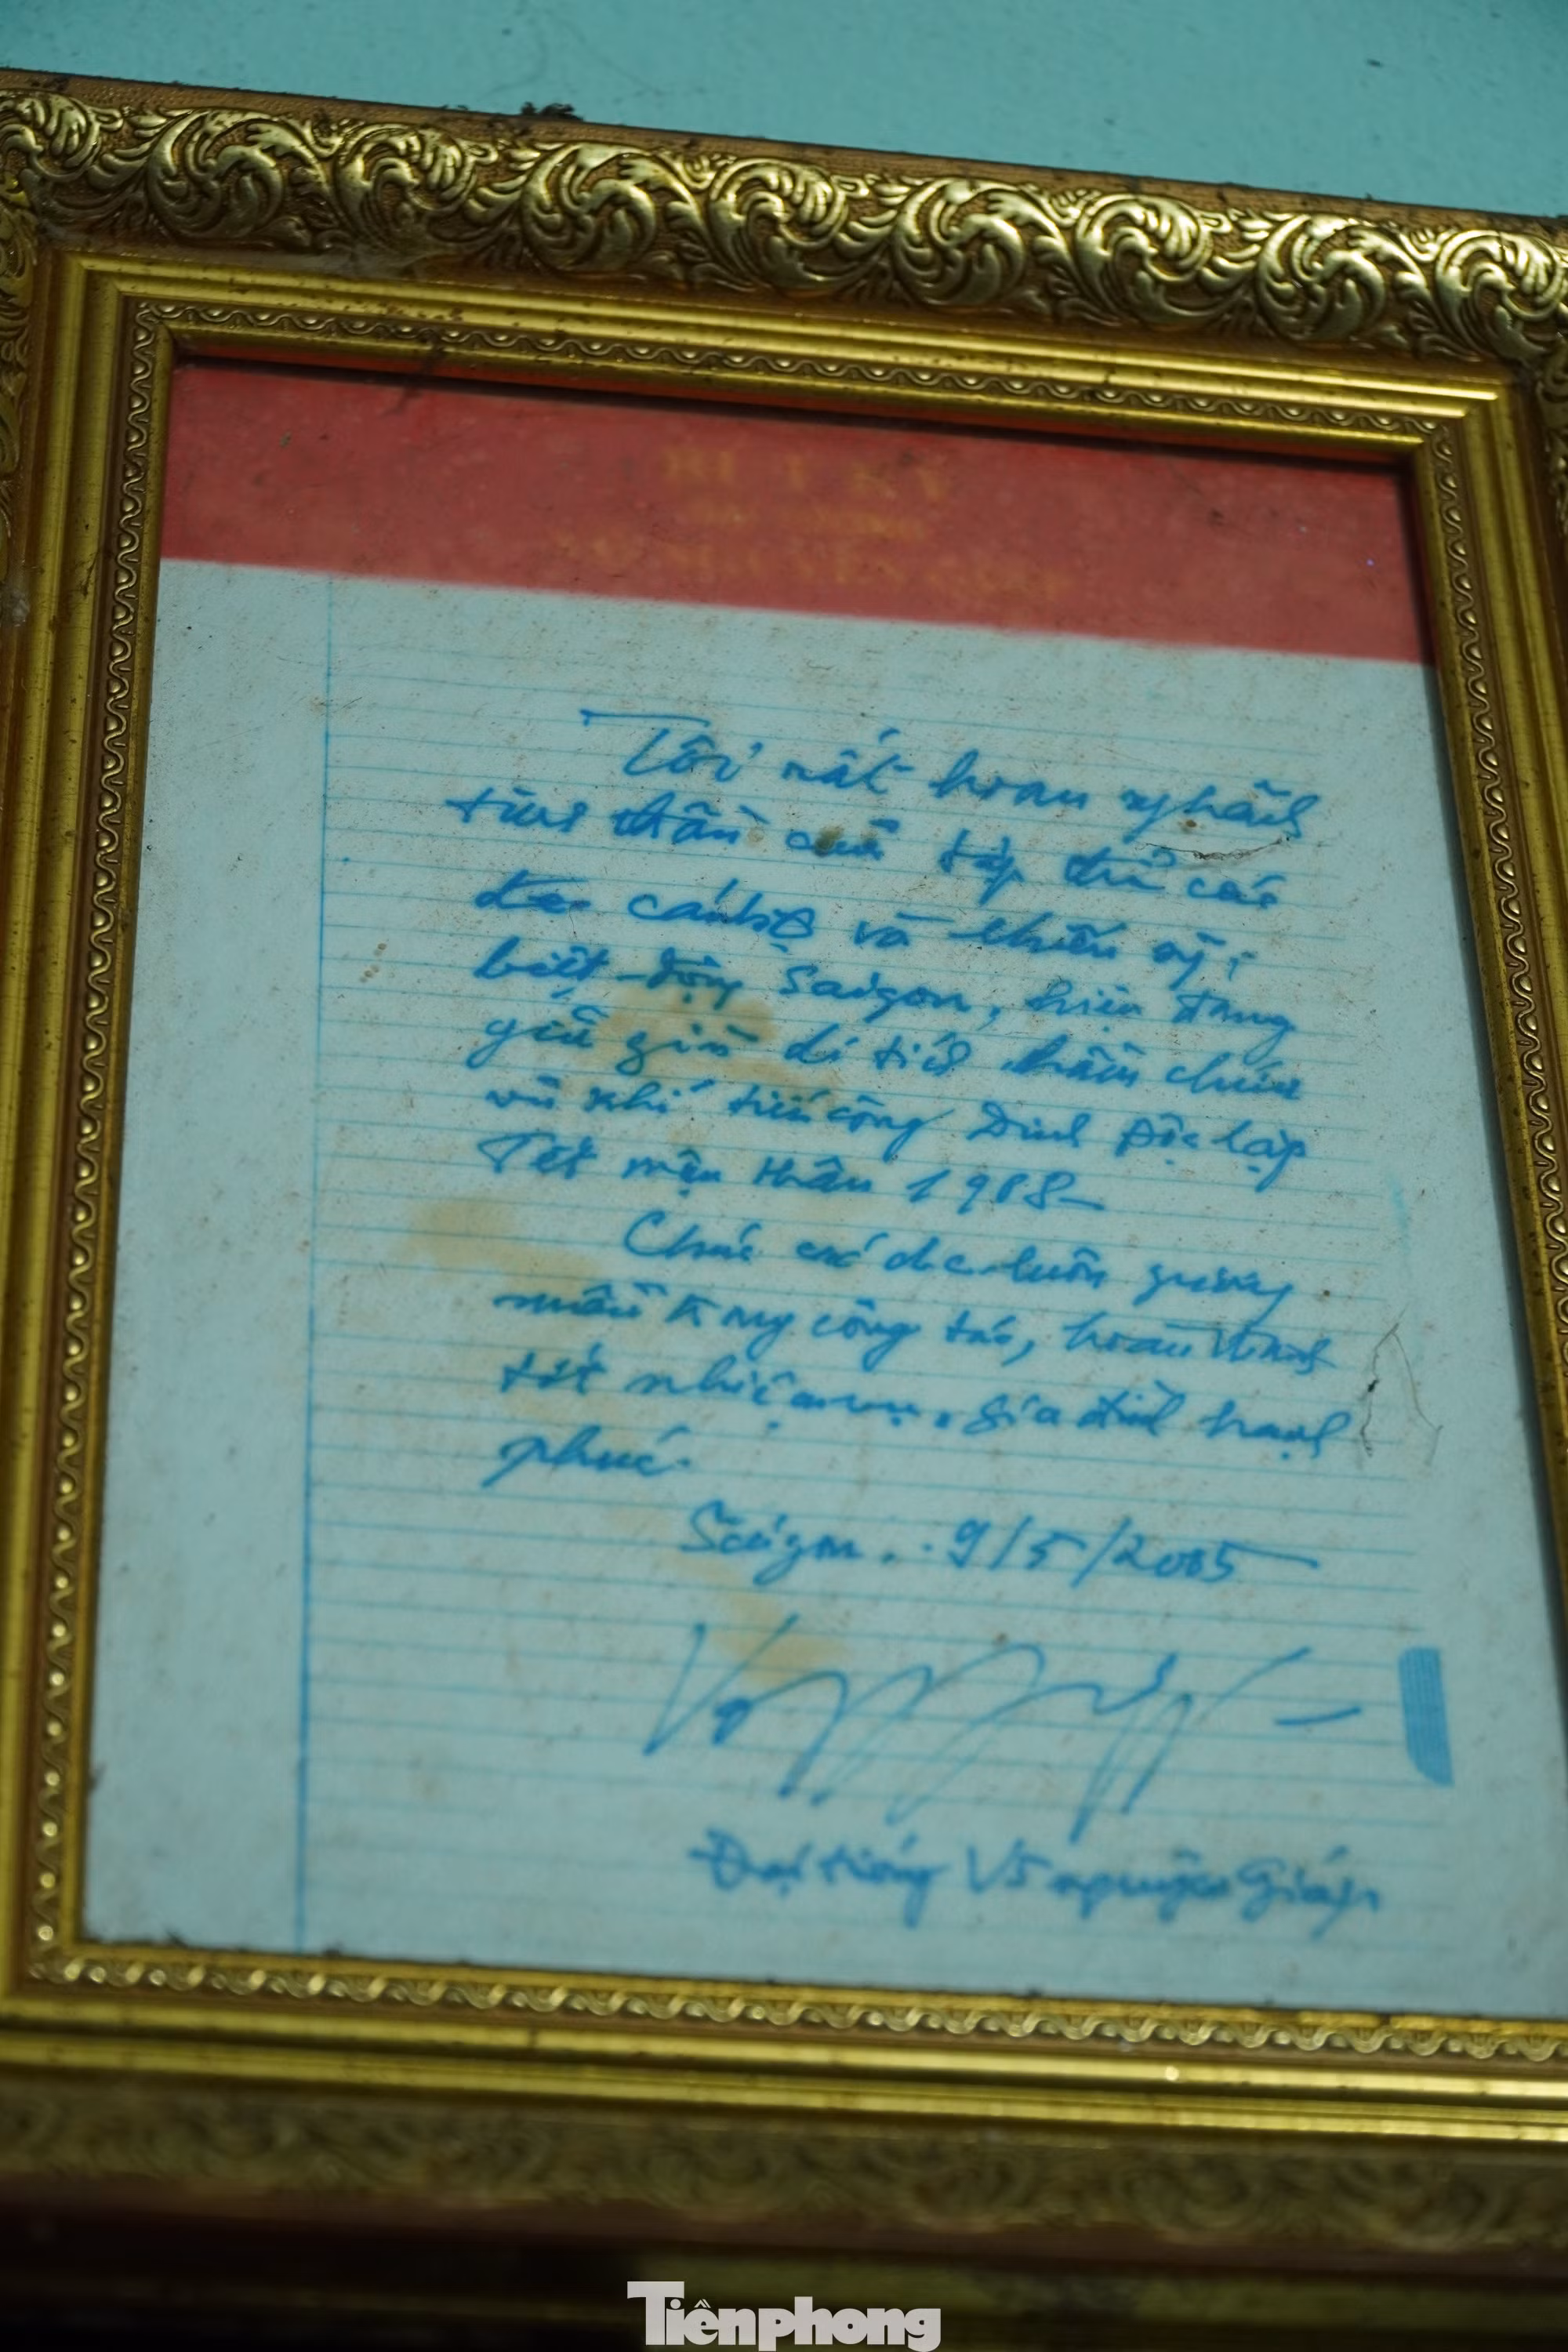 BÚT KÝ
Tôi rất hoan nghênh
tinh thần của tập thể các
đ/c cán bộ và chiến sỹ
biệt động Saigon, hiện đang
giữ gìn di tích hầm chứa
vũ khí tiến công Dinh Độc lập
Tết mậu thân 1968
Chúc các đ/c luôn gương
mẫu trong công tác, hoàn thành
tốt nhiệm vụ, gia đình hạnh
phúc.
Saigon.. 9/5/2005
Đại tướng Võ nguyên Giáp
Tiênphong